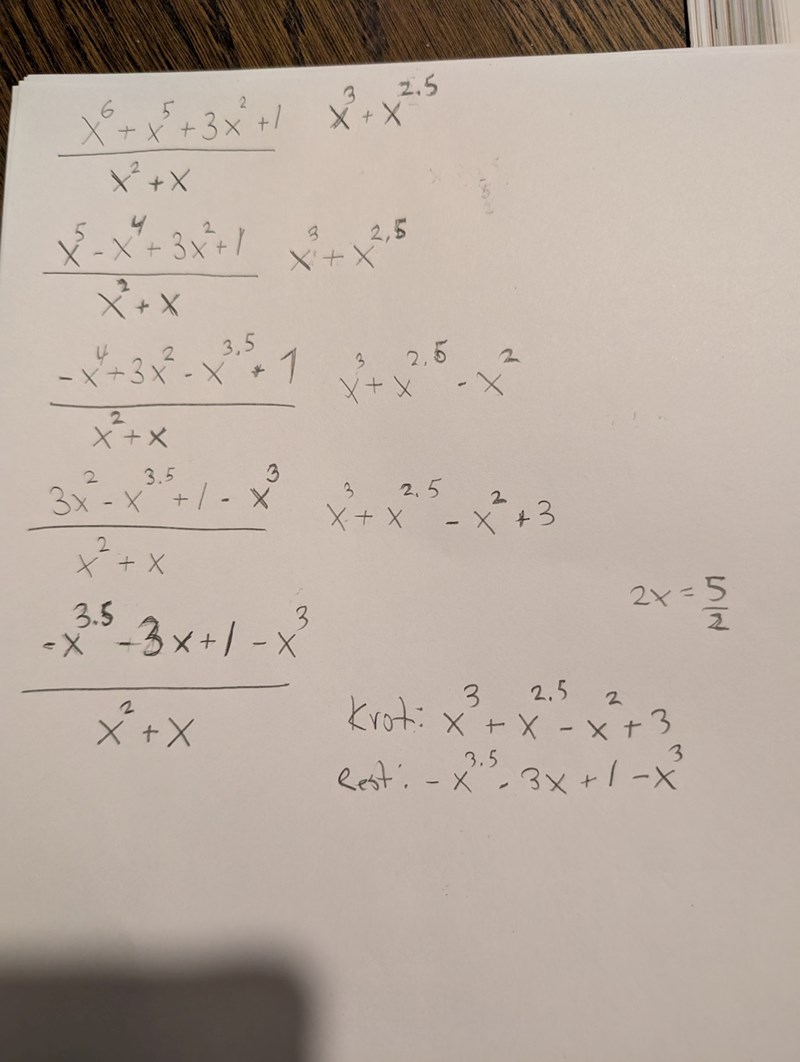 x^6 + x^5 + 3x^2 + 1 / x^2 + x    x^3 + x^2.5
x^5 - x^4 + 3x^2 + 1 / x^2 + x    x^3 + x^2,5
-x^4 + 3x^2 - x^3,5 + 1 / x^2 + x    x^3 + x^2,5 - x^2
3x^2 - x^3.5 + 1 - x^3 / x^2 + x    x^3 + x^2.5 - x^2 + 3
2x = 5/2
-x^3.5 - 3x + 1 - x^3 / x^2 + x
Kvot: x^3 + x^2.5 - x^2 + 3
Rest: -x^3.5 - 3x + 1 - x^3